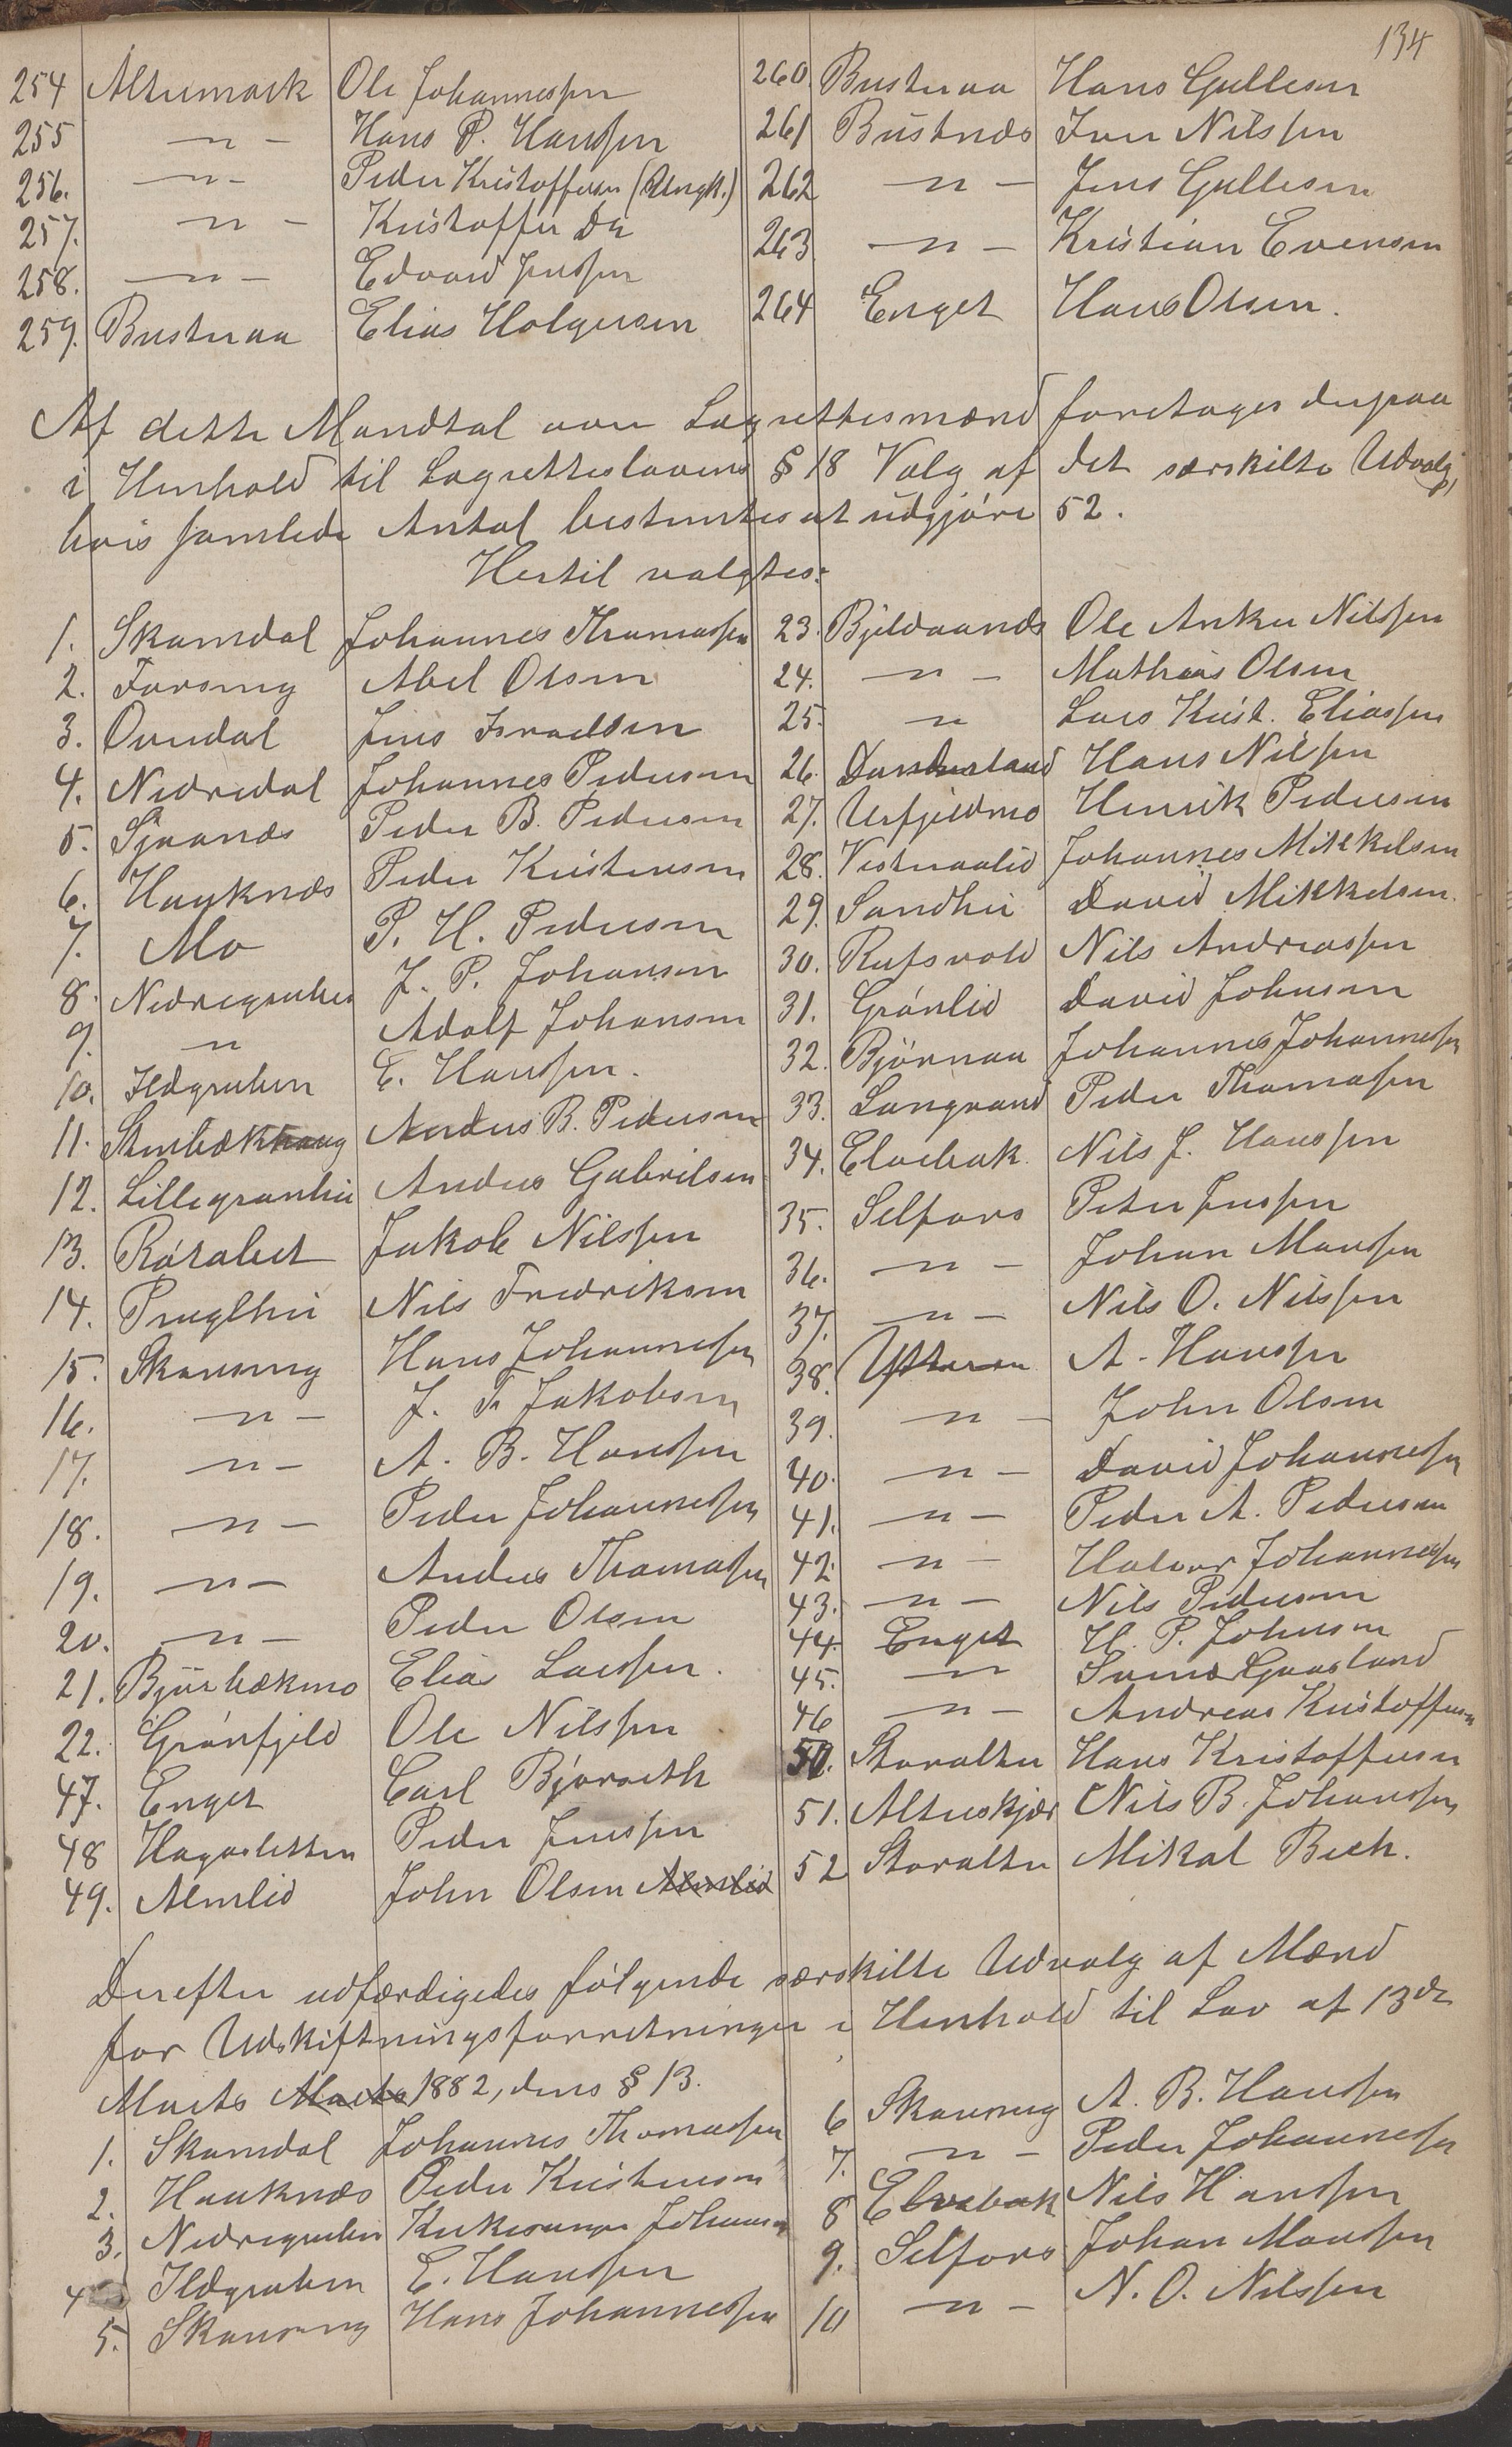 134
254 Alteremark Ole Johannessen
255 — " — Hans P. Hanssen
256. — " — Peder Kristoffersen (Ungk.)
257. — " — Kristoffer Do
258. — " — Edvard Jenssen
259. Bustneraa Elias Holgersen
260. Bustneraa Hans Gullesen
261 Bustnæs Iver Nilssen
262 — " — Jens Gullesen
263 — " — Kristian Evensen
264 Enget Hans Olsen.
Af dette Mandtal over Lagrettesmænd foretages derpaa
i Henhold til Lagretteslovens § 18 Valg af det særskilte Udvalg,
hvis samlede Antal bestemtes at udgjøre 52.
Hertil valgtes:
1. Skamdal Johannes Thomassen
2. Forsmeng Abel Olsen
3. Ørendal Jens Israelsen
4. Nedredal Johannes Pedersen
5. Sjaanæs Peder B. Pedersen
6. Hauknæs Peder Kristensen
7. Mo P. H. Pedersen
8. Nedregruben J. P. Johansen
9. " Adolf Johansen
10. Ildgruben E. Hanssen.
11. Stenbækhaug Anders B. Pedersen
12. Lillegranhei Anders Gabrielsen
13. Røsalret Jakob Nilssen
14. Prughei Nils Fredriksen
15. Skonseng Hans Johannessen
16. — " — J. F. Jakobsen
17. — " — A. B. Hanssen
18. — " — Peder Johannessen
19. — " — Anders Thomassen
20. — " — Peder Olsen
21. Bjørbækmo Elias Larssen.
22. Grønfjeld Ole Nilssen
47. Enget Carl Bjørseth
48 Hagasletten Peder Jenssen
49. Almlid John Olsen Almlid
23. Bjeldaanæs Ole Anker Nilssen
24. — " — Mathias Olsen
25. " Lars Krist. Eliassen
26. Dunderland Hans Nilsen
27. Urfjeldmo Henrik Pedersen
28. Vesteraalid Johannes Mikkelsen
29. Sandhei David Mikkelsen.
30. Rufsvold Nils Andreassen
31. Grønlid David Johnsen
32. Bjørnaa Johannes Johannessen
33. Langvand Peder Thomassen
34. Elvebak Nils J. Hanssen
35. Selfors Peter Jenssen
36. — " — Johan Monssen
37. — " — Nils O. Nilssen
38. Ytteren A. Hanssen
39. — " — John Olsen
40. — " — David Johannessen
41. — " — Peder A. Pedersen
42. — " — Halvor Johannessen
43. — " — Nils Pedersen
44. Enget H. P. Johnsen
45. — " Gaasland
46 — " — Andreas Kristoffersen
50. Storalter Hans Kristoffersen
51. Alterskjær Nils B. Johanssen
52 Storalter Mikal Bech.
Derefter udfærdigedes følgende særskilte Udvalg af Mænd
for Udskiftningsforretninger i Henhold til Lov af 13de
Marts Marts 1882, dens § 13.
1. Skamdal Johannes Thomassen
2. Hauknæs Peder Kristensen
3. Nedregruben Kirkesanger Johansen
4 Ildgruben E. Hanssen
5. Skonseng Hans Johannessen
6 Skonseng A. B. Hanssen
7. — " — Peder Johannessen
8 Elvebak Nils Hanssen
9. Selfors Johan Monssen
10 — " — N. O. Nilssen